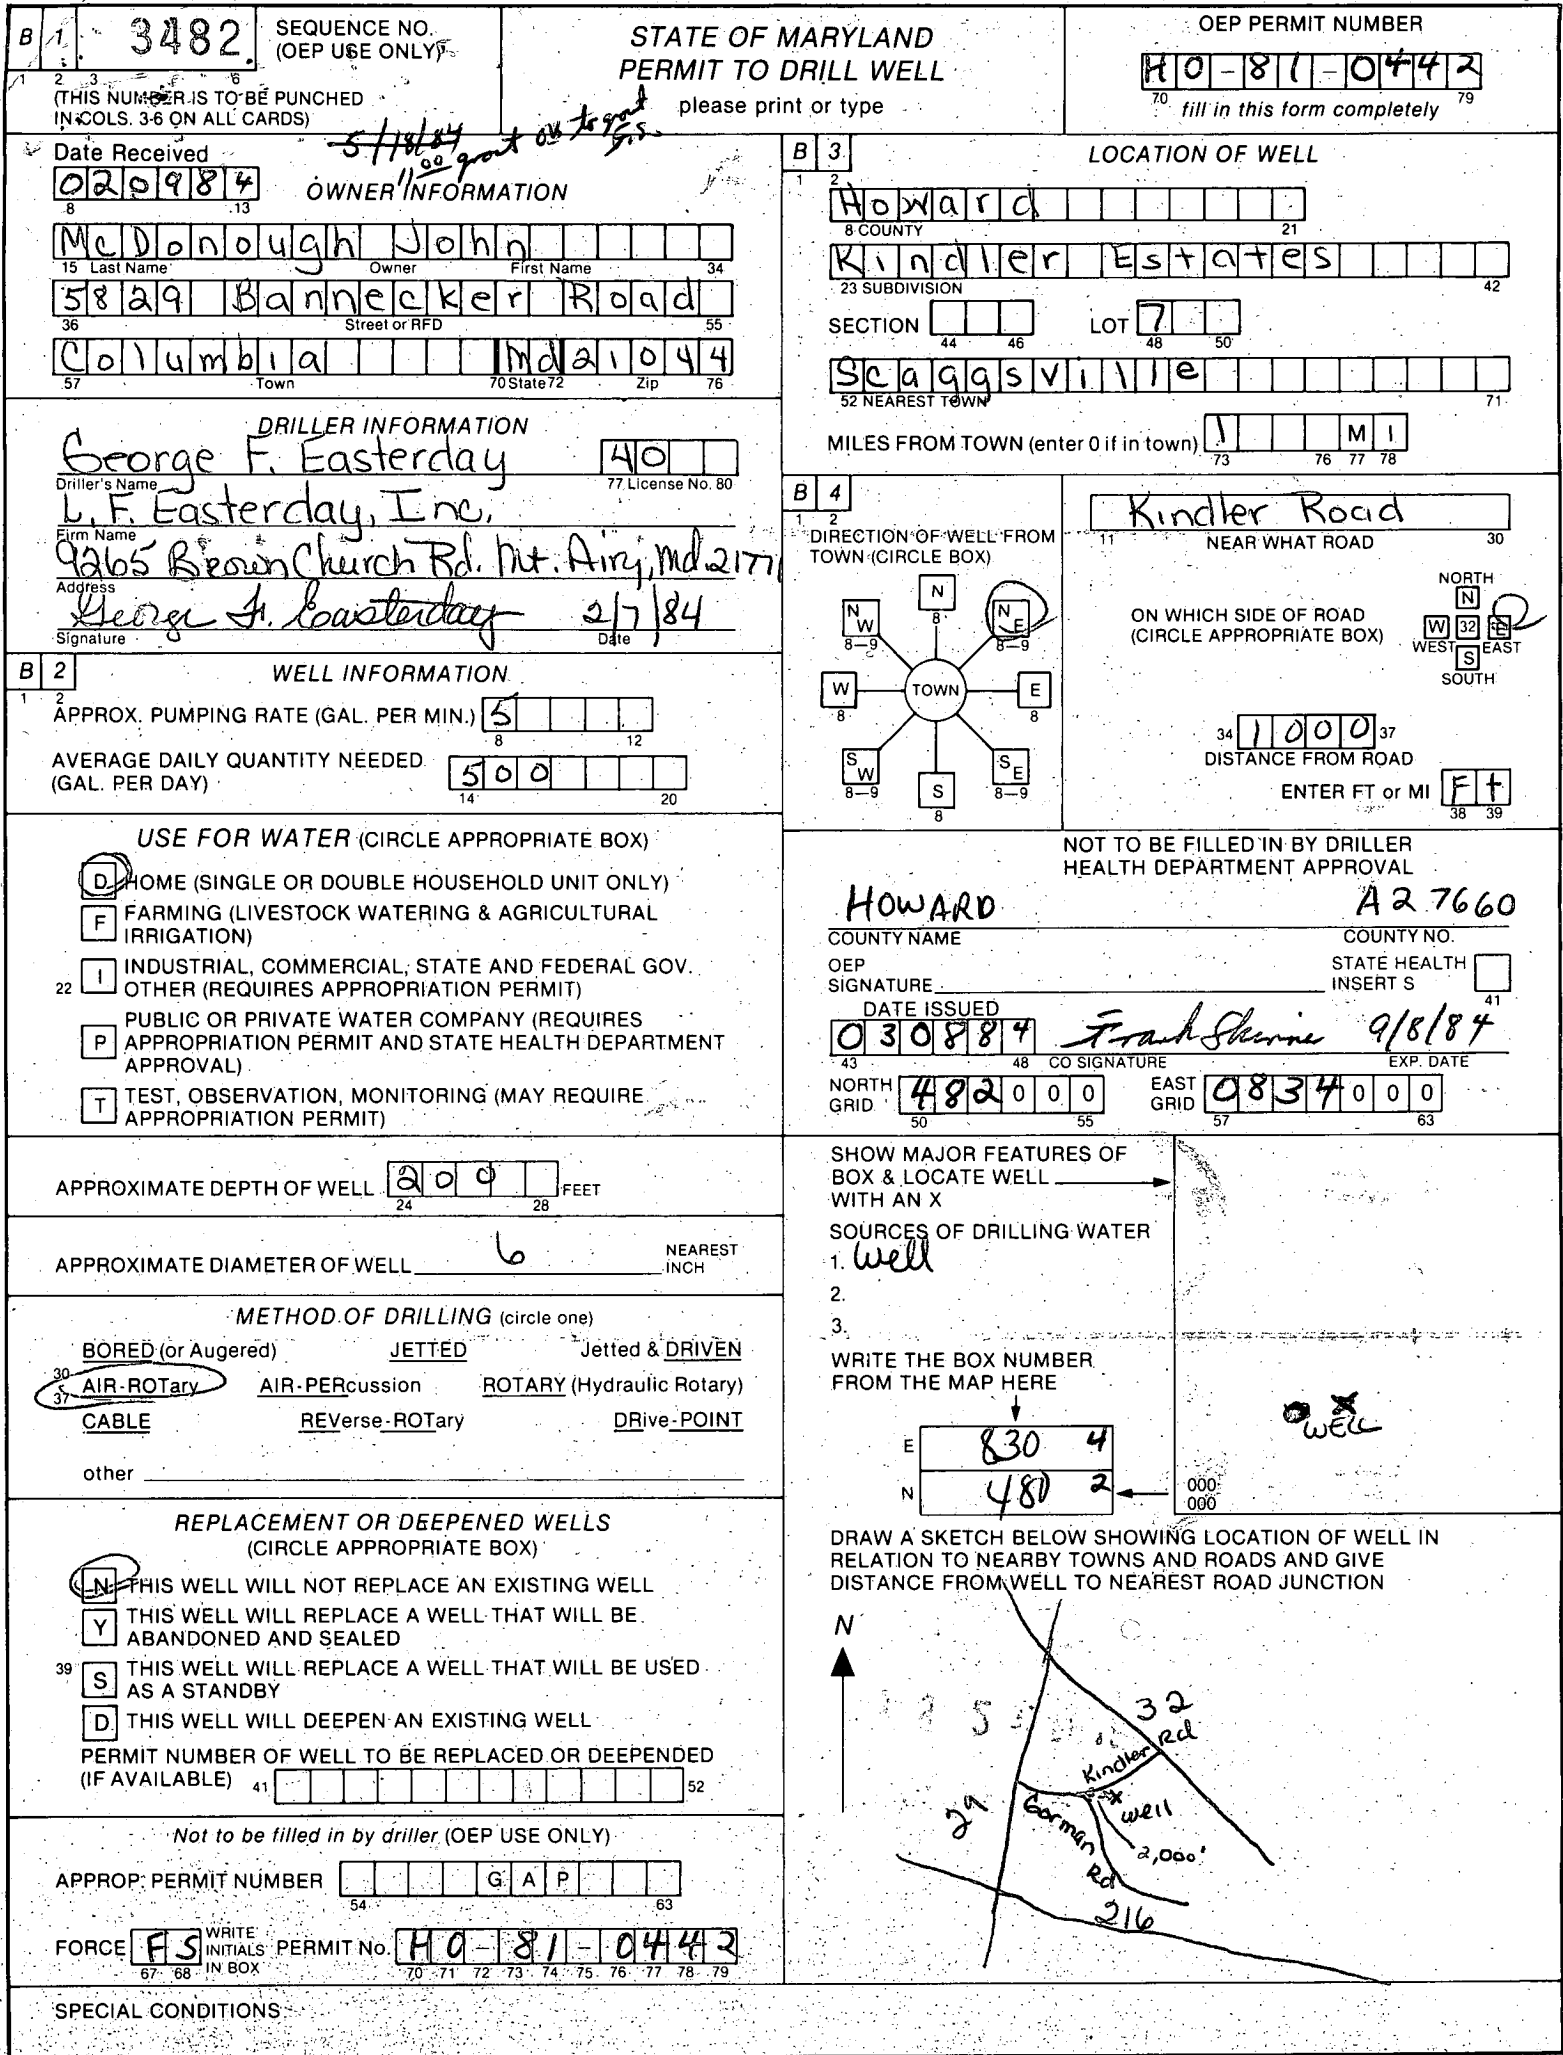 B 1 3482 SEQUENCE NO.
(OEP USE ONLY)
1 2 3 6
(THIS NUMBER IS TO BE PUNCHED
IN COLS. 3-6 ON ALL CARDS)
STATE OF MARYLAND
PERMIT TO DRILL WELL
please print or type
OEP PERMIT NUMBER
HO-81-0442
70 79
fill in this form completely
5/18/84
11 00 grout ok to grout
F.S.
Date Received
020984
8 13
OWNER INFORMATION
McDonough John
15 Last Name Owner First Name 34
5829 Bannecker Road
36 Street or RFD 55
Columbia Md 21044
57 Town 70 State 72 Zip 76
DRILLER INFORMATION
George F. Easterday 40
Driller's Name 77 License No. 80
L. F. Easterday, Inc.
Firm Name
9265 Brown Church Rd. Mt. Airy, Md. 21771
Address
George F. Easterday 2/7/84
Signature Date
B 2 WELL INFORMATION
1 2
APPROX. PUMPING RATE (GAL. PER MIN.) 5
8 12
AVERAGE DAILY QUANTITY NEEDED
(GAL. PER DAY) 500
14 20
USE FOR WATER (CIRCLE APPROPRIATE BOX)
D HOME (SINGLE OR DOUBLE HOUSEHOLD UNIT ONLY)
F FARMING (LIVESTOCK WATERING & AGRICULTURAL
IRRIGATION)
22 I INDUSTRIAL, COMMERCIAL, STATE AND FEDERAL GOV.
OTHER (REQUIRES APPROPRIATION PERMIT)
P PUBLIC OR PRIVATE WATER COMPANY (REQUIRES
APPROPRIATION PERMIT AND STATE HEALTH DEPARTMENT
APPROVAL)
T TEST, OBSERVATION, MONITORING (MAY REQUIRE
APPROPRIATION PERMIT)
APPROXIMATE DEPTH OF WELL 200 FEET
24 28
APPROXIMATE DIAMETER OF WELL 6 NEAREST
INCH
METHOD OF DRILLING (circle one)
BORED (or Augered) JETTED Jetted & DRIVEN
30 37 AIR-ROTary AIR-PERcussion ROTARY (Hydraulic Rotary)
CABLE REVerse-ROTary DRive-POINT
other
REPLACEMENT OR DEEPENED WELLS
(CIRCLE APPROPRIATE BOX)
N THIS WELL WILL NOT REPLACE AN EXISTING WELL
Y THIS WELL WILL REPLACE A WELL THAT WILL BE
ABANDONED AND SEALED
39 S THIS WELL WILL REPLACE A WELL THAT WILL BE USED
AS A STANDBY
D THIS WELL WILL DEEPEN AN EXISTING WELL
PERMIT NUMBER OF WELL TO BE REPLACED OR DEEPENDED
(IF AVAILABLE) 41 52
Not to be filled in by driller (OEP USE ONLY)
APPROP. PERMIT NUMBER G A P
54 63
FORCE FS WRITE INITIALS IN BOX PERMIT No. HO-81-0442
67 68 70 71 72 73 74 75 76 77 78 79
SPECIAL CONDITIONS
B 3 LOCATION OF WELL
1 2
Howard
8 COUNTY 21
Kindler Estates
23 SUBDIVISION 42
SECTION LOT 7
44 46 48 50
Scaggsville
52 NEAREST TOWN 71
MILES FROM TOWN (enter 0 if in town) 1 MI
73 76 77 78
B 4
1 2
DIRECTION OF WELL FROM
TOWN (CIRCLE BOX)
N 8
NW 8-9
NE 8-9
W 8
TOWN
E 8
SW 8-9
SE 8-9
S 8
Kindler Road
11 NEAR WHAT ROAD 30
ON WHICH SIDE OF ROAD
(CIRCLE APPROPRIATE BOX)
NORTH
N
W 32 E
WEST EAST
S
SOUTH
34 1000 37
DISTANCE FROM ROAD
ENTER FT or MI Ft
38 39
NOT TO BE FILLED IN BY DRILLER
HEALTH DEPARTMENT APPROVAL
HOWARD A27660
COUNTY NAME COUNTY NO.
OEP
SIGNATURE
STATE HEALTH
INSERT S
41
DATE ISSUED
030884 Frank Skinner 9/8/84
43 48 CO SIGNATURE EXP. DATE
NORTH GRID 482000 EAST GRID 0834000
50 55 57 63
SHOW MAJOR FEATURES OF
BOX & LOCATE WELL
WITH AN X
SOURCES OF DRILLING WATER
1. Well
2.
3.
WRITE THE BOX NUMBER
FROM THE MAP HERE
E 830 4
N 480 2
X
WELL
000
000
DRAW A SKETCH BELOW SHOWING LOCATION OF WELL IN
RELATION TO NEARBY TOWNS AND ROADS AND GIVE
DISTANCE FROM WELL TO NEAREST ROAD JUNCTION
N
32
Kindler Rd
29
x well
Gorman Rd
2,000'
216